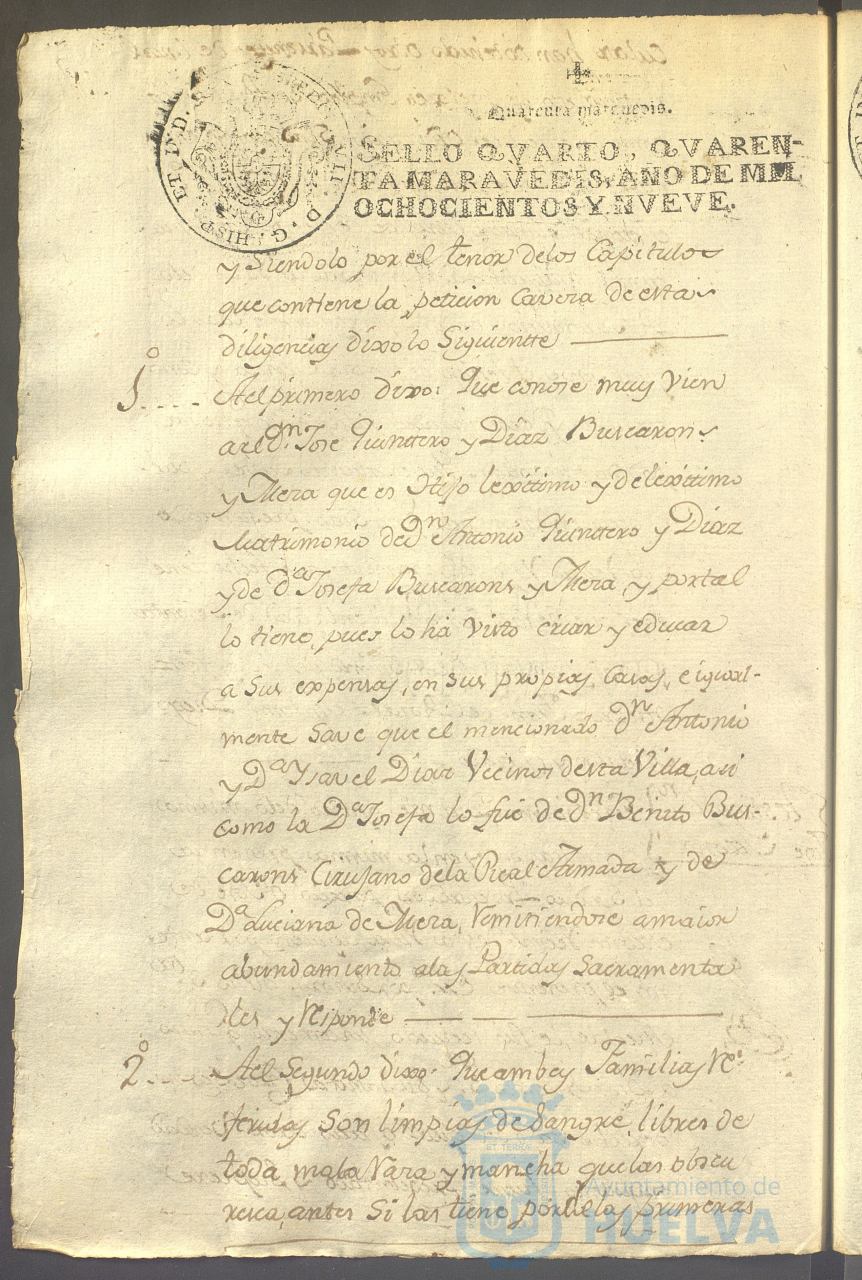 Quarenta maravedis.
SELLO QVARTO, QVAREN-
TA MARAVEDIS, AÑO DE MIL
OCHOCIENTOS Y NVEVE.
D. G. HISP. ET IND. R.
y siendolo por el tenor delos Capitulos
que contiene la peticion Cavera de estas
diligencias dixo lo Siguientte
1º.... Ael primero dixo: Que conose muy vien
a el Dn. Jose Quinttero y Diaz Buscarons
y Mera que es Hijo lexitimo y de lexitimo
Matrimonio de Dn Antonio Quinttero y Diaz
y de Da Josefa Buscarons y Mera, y portal
lo tiene, pues lo ha visto criar y educar
a Sus expensas, en sus propias Casas, e igual-
mente Save que el mencionado Dn Antonio
y Da Ysavel Diaz Vecinos desta Villa, asi
como la Da Josefa lo fue de Dn Benito Bus-
carons Cirujano dela Real Armada y de
Da Luciana de Mera, remitiendose a maior
abundamiento alas Partidas Sacramenta
les y responde
2º... Ael Segundo dixo: Que ambas Familias re-
feridas son limpias de Sangre, libres de
toda mala Rara y mancha que las obscu
resca, antes Si las tiene por de las primeras
Ayuntamiento de
HUELVA